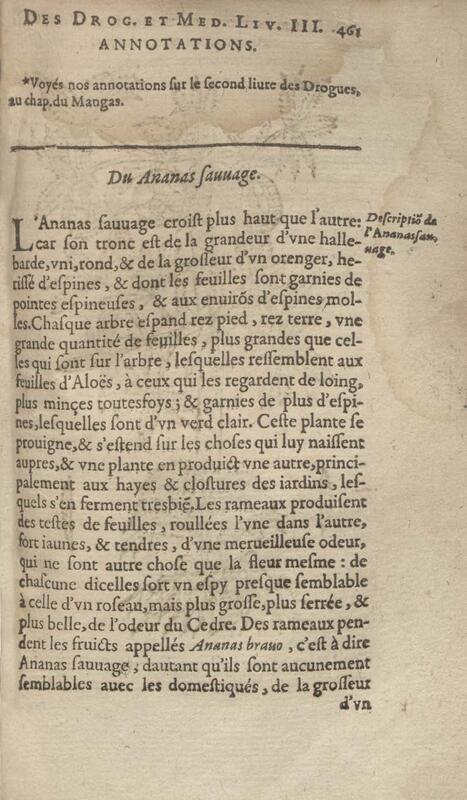 DES DROG. ET MED. LIV. III. 461
ANNOTATIONS.
*Voyés nos annotations ſur le second liure des Drogues,
au chap. du Mangas.
Du Ananas ſauuage.
L'Ananas ſauuage croiſt plus haut que l'autre:
car ſon tronc eſt de la grandeur d'vne halle-
barde, vni, rond, & de la groſſeur d'vn orenger, he-
riſſé d'eſpines, & dont les feuilles ſont garnies de
pointes eſpineuſes, & aux enuirõs d'eſpines mol-
les. Chaſque arbre eſpand rez pied, rez terre, vne
grande quantité de feuilles, plus grandes que cel-
les qui ſont ſur l'arbre, leſquelles reſſemblent aux
feuilles d'Aloës, à ceux qui les regardent de loing,
plus minçes toutesfoys; & garnies de plus d'eſpi-
nes, leſquelles ſont d'vn verd clair. Ceſte plante ſe
prouigne, & s'eſtend ſur les choſes qui luy naiſſent
aupres, & vne plante en produict vne autre, princi-
palement aux hayes & cloſtures des iardins, leſ-
quels s'en ferment tresbiẽ. Les rameaux produiſent
des teſtes de feuilles, roullées l'vne dans l'autre,
fort iaunes, & tendres, d'vne merueilleuſe odeur,
qui ne ſont autre choſe que la fleur meſme: de
chaſcune dicelles ſort vn eſpy presque ſemblable
à celle d'vn roſeau, mais plus groſſe, plus ſerrée, &
plus belle, de l'odeur du Cedre. Des rameaux pen-
dent les fruicts appellés Ananas brauo, c'eſt à dire
Ananas ſauuage; dautant qu'ils ſont aucunement
ſemblables auec les domeſtiqués, de la groſſeur
d'vn
Deſcriptiõ de
l'Ananas ſau-
uage.